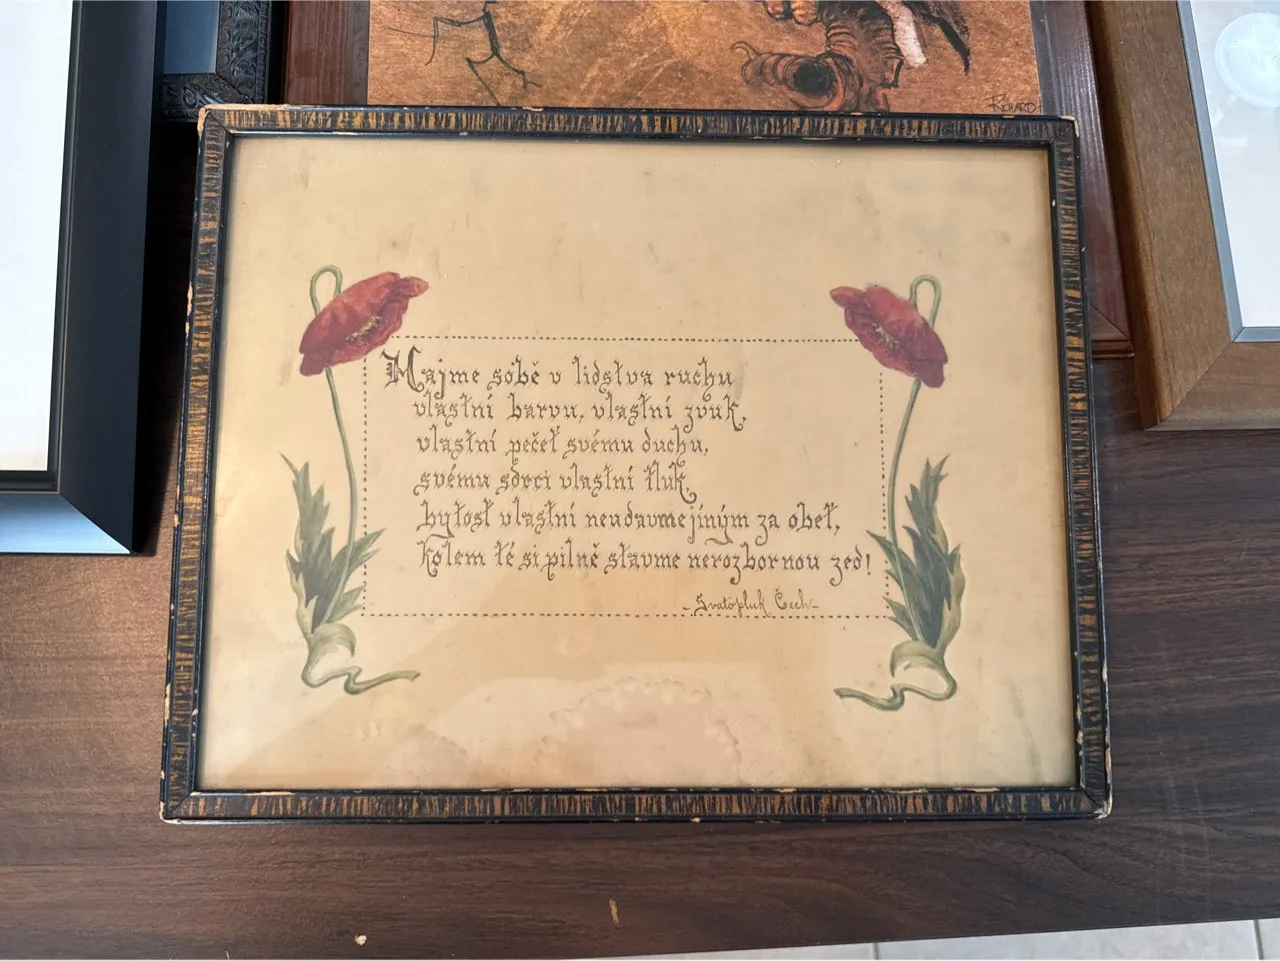 RICHARD
Majme sóbě v lidstva ruchu
vlastní barvu, vlastní zvuk,
vlastní pečeť svému duchu,
svému sdrci vlastní tluk,
bytost vlastní neudavmejíným za oběť,
kolem té si pilně stavme nerozbornou zeď!
- Svatopluk Čech -